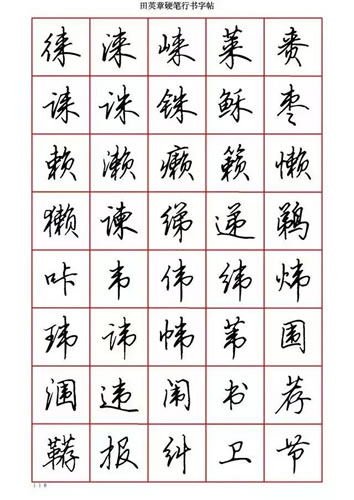 田英章硬笔行书字帖
徕 涞 崃 莱 赉
诔 诛 铢 稣 枣
赖 濑 癞 籁 懒
獭 谏 绨 递 鹈
咔 韦 伟 纬 炜
玮 讳 帏 苇 围
涠 违 闱 书 荐
鞯 报 纠 卫 节